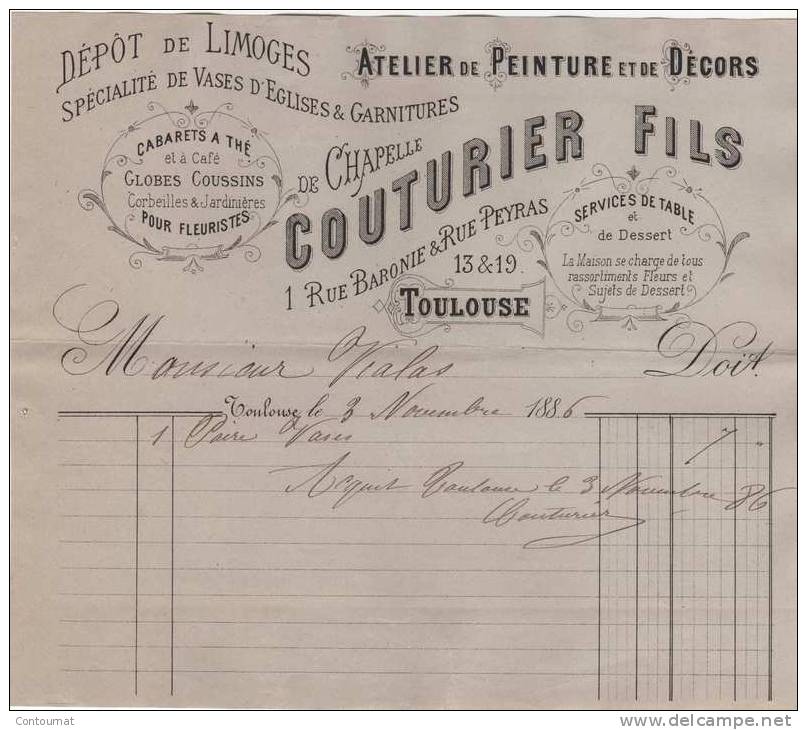 DÉPÔT DE LIMOGES
SPÉCIALITÉ DE VASES D'EGLISES & GARNITURES
DE CHAPELLE
ATELIER DE PEINTURE ET DE DÉCORS
CABARETS A THÉ
et à Café
GLOBES COUSSINS
Corbeilles & Jardinières
POUR FLEURISTES
COUTURIER FILS
1 RUE BARONIE & RUE PEYRAS
13 & 19.
TOULOUSE
SERVICES DE TABLE
et
de Dessert
La Maison se charge de tous
rassortiments Fleurs et
Sujets de Dessert
Monsieur Vialas Doit
Toulouse le 3 Novembre 1886
1 Paire Vases 7 "
Acquit Toulouse le 3 Novembre 86
Couturier
Contournat
www.delcampe.net